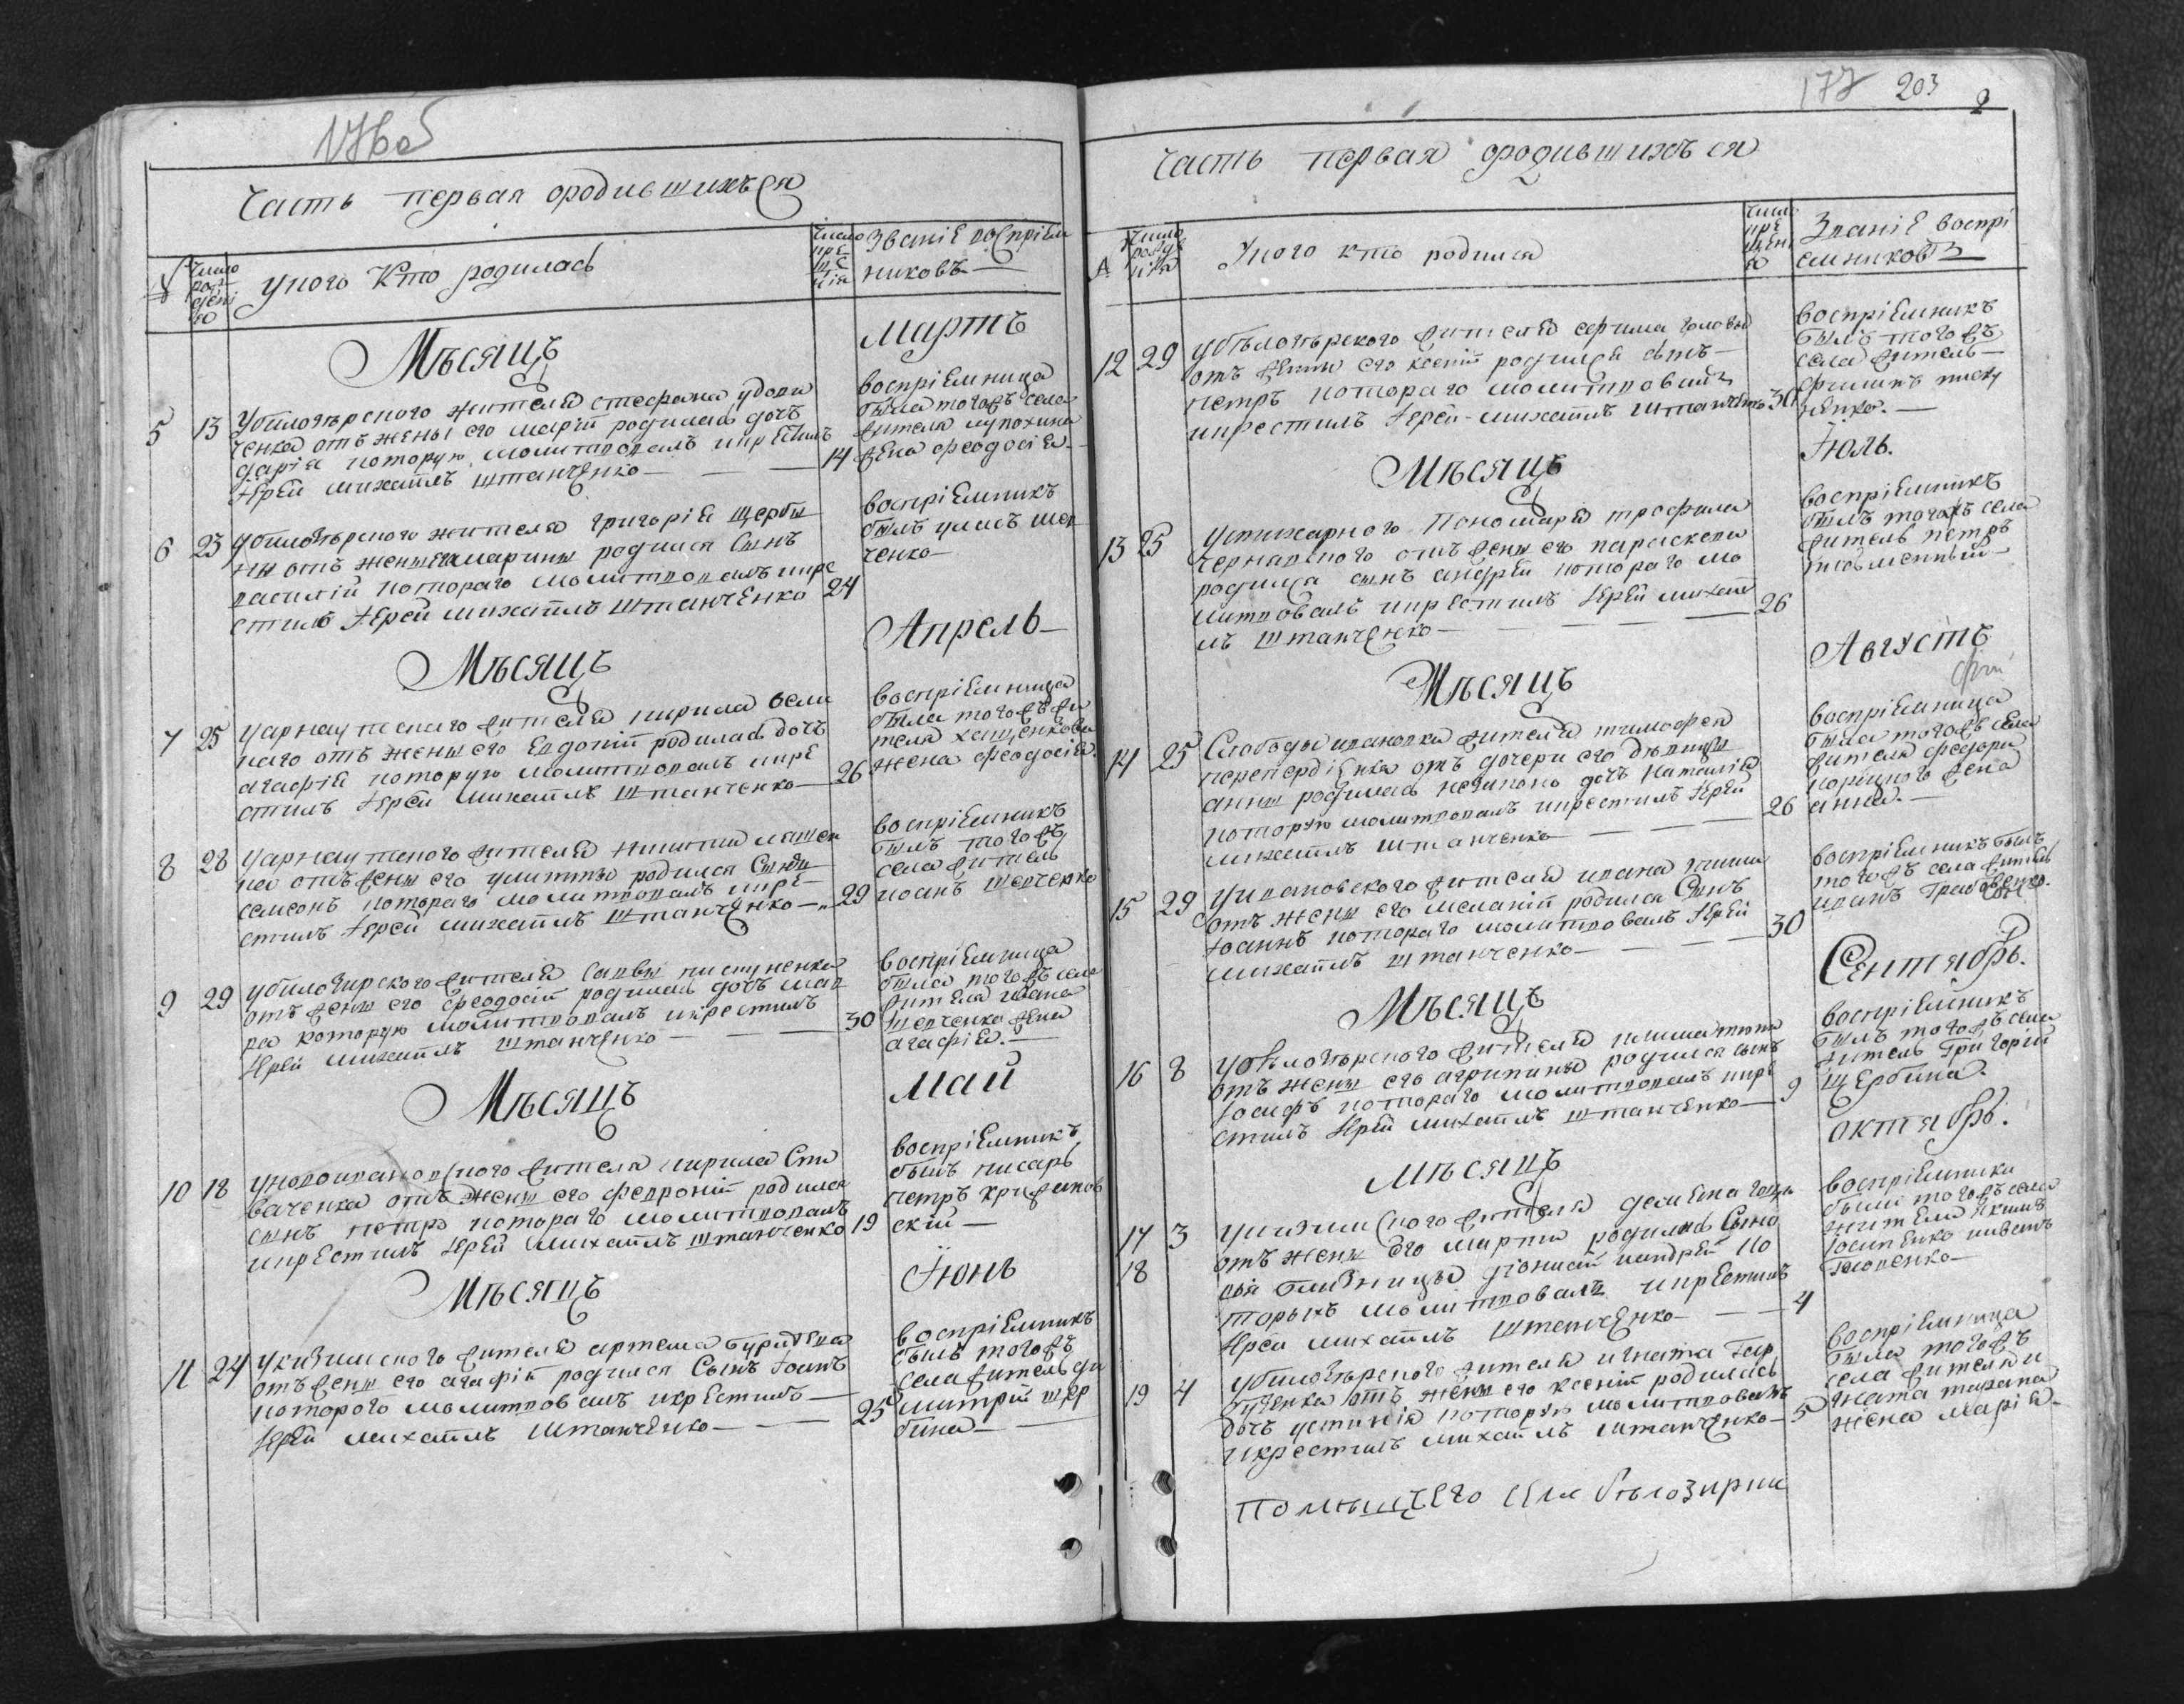 176об
Часть первая ородившихъся
№
Число рождені я
Уного Кто родилась
Число кре ще нія
Званіе воспріем
никовъ
Мѣсяцъ
Мартъ
5 13 Убилозѣрского жителя стефана удови
ченка отъ жены его маріи родилась дочь
дарія которую молитвовалъ икрестилъ
Іерей михаилъ штанченко 14
воспріемница
была тогожъ села
жителя
жена феодосія
6 23 Убилозѣрского жителя григорія щерби
ни отъ жены его марины родился Сынъ
василій котораго молитвовалъ икре
стилъ Іерей михаилъ Штанченко 24
воспріемникъ
былъ
ченко
Мѣсяцъ
Апрель
7 25 Уарнаутского жителя кирила
ного отъ жены его Евдокіи родилась дочь
агафія которую молитвовалъ икре
стилъ Іерей михаилъ Штанченко 26
воспріемница
была тогожъ жи
теля
жена феодосія
8 28 Уарнаутского жителя никити
ка отъ жены его улитты родился Сынъ
самсонъ котораго молитвовалъ икре
стилъ Іерей михаилъ Штанченко 29
воспріемникъ
былъ тогожъ
села житель
иоанъ шевченко
9 29 Убилозирского жителя савы пискуненка
отъ жены его феодосіи родилась дочь мав
ра которую молитвовалъ икрестилъ
Іерей михаилъ штанченко 30
воспріемница
была тогожъ села
жителя ивана
Шевченка жена
агафія
Мѣсяцъ
Май
10 18 жителя кирила Спи
ваченка отъ жены его февроніи родился
сынъ петръ котораго молитвовалъ
икрестилъ Іерей Михаилъ штанченко 19
воспріемникъ
былъ писарь
петръ крижанов
скій
Мѣсяцъ
Іюнь
11 24 Укизимского жителя артема
отъ жены его агафіи родился Сынъ Іоанъ
которого молитвовалъ икрестилъ
Іерей михаилъ Штанченко 25
воспріемникъ
былъ тогожъ
села житель ди
митрій щер
бина
177 203
2
Часть первая ородившихъся
№
Число рожде нія
Уного кто родился
Число кре щені я
Званіе воспрі
емниковъ
12 29 Убѣлозѣрского жителя ефима головы
отъ жены его ксеніи родился сынъ
петръ котораго молитвовалъ
икрестилъ Іерей михаилъ штанченко 30
воспріемникъ
былъ тогожъ
села житель
ефимъ писку
ненко.
Мѣсяцъ
Іюль.
13 25 Устижарного Пономаря трофима
чернавного отъ жены его параскеви
родился сынъ андрей котораго мо
литвовалъ икрестилъ Іерей михаи
лъ штанченко 26
воспріемникъ
былъ тогожъ села
житель петръ
Мѣсяцъ
Августъ
14 25 Слободы ивановки жителя тимофея
переперденка отъ дочери его дѣвицы
анны родилась незаконо дочь наталія
которую молитвовалъ икрестилъ Іерей
михаилъ штанченко 26
воспріемница
была тогожъ села
жителя федора
жена
анна.
15 29 Уивановского жителя ивана
отъ жены его меланіи родился Сынъ
Іоаннъ котораго молитвовалъ Іерей
михаилъ штанченко 30
воспріемникъ былъ
тогожъ села житель
иванъ
Мѣсяцъ
Сентябрь.
16 8 Убѣлозѣрского жителя
отъ жены его агрипины родился сынъ
Іосифъ котораго молитвовалъ икре
стилъ Іерей михаилъ штанченко 9
воспріемникъ
былъ тогожъ села
житель Григорій
Щербина.
Мѣсяцъ
октябрь.
17 3 Укизимского жителя демяна
18 отъ жены его марты родились Сыно
вя близници діонисій иандрей ко
торыхъ молитвовалъ икрестилъ
Іерей михаилъ Штанченко 4
воспріемники
были тогожъ села
жителя якимъ
иосипенко иивань
19 4 Убилозѣрского жителя игната
отъ жены его ксеніи родилась
дочь устинія которую молитвовалъ
икрестилъ михаилъ штанченко 5
воспріемница
была тогожъ
села жителя и
гната тарана
жена марія
помѣщичего села бѣлозирки